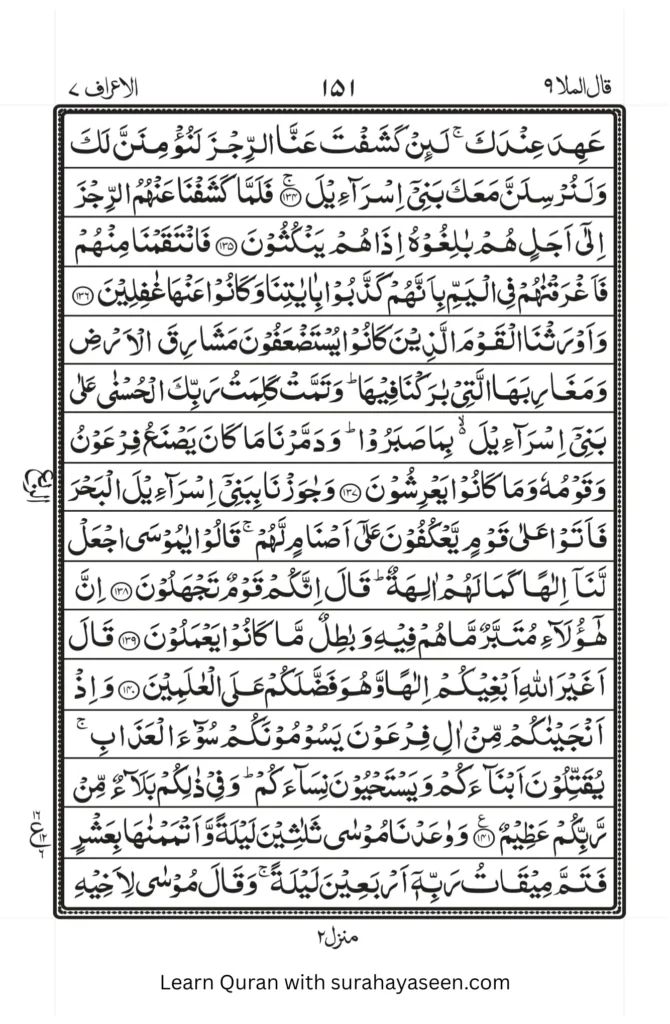 قال الملا ٩ ١٥١ الاعراف ٧
عَهِدَ عِنْدَكَ ۚ لَئِنْ كَشَفْتَ عَنَّا الرِّجْزَ لَنُؤْمِنَنَّ لَكَ
وَلَنُرْسِلَنَّ مَعَكَ بَنِيْۤ اِسْرَآءِيْلَ ۚ ﴿۱۳۴﴾ فَلَمَّا كَشَفْنَا عَنْهُمُ الرِّجْزَ
اِلٰۤى اَجَلٍ هُمْ بٰلِغُوْهُ اِذَا هُمْ يَنْكُثُوْنَ ﴿۱۳۵﴾ فَانْتَقَمْنَا مِنْهُمْ
فَاَغْرَقْنٰهُمْ فِي الْيَمِّ بِاَنَّهُمْ كَذَّبُوْا بِاٰيٰتِنَا وَكَانُوْا عَنْهَا غٰفِلِيْنَ ﴿۱۳۶﴾
وَاَوْرَثْنَا الْقَوْمَ الَّذِيْنَ كَانُوْا يُسْتَضْعَفُوْنَ مَشَارِقَ الْاَرْضِ
وَمَغَارِبَهَا الَّتِيْ بٰرَكْنَا فِيْهَا ؕ وَتَمَّتْ كَلِمَتُ رَبِّكَ الْحُسْنٰى عَلٰى
بَنِيْۤ اِسْرَآءِيْلَ ۙ۬ بِمَا صَبَرُوْا ؕ وَدَمَّرْنَا مَا كَانَ يَصْنَعُ فِرْعَوْنُ
وَقَوْمُهٗ وَمَا كَانُوْا يَعْرِشُوْنَ ﴿۱۳۷﴾ وَجٰوَزْنَا بِبَنِيْۤ اِسْرَآءِيْلَ الْبَحْرَ
فَاَتَوْا عَلٰى قَوْمٍ يَّعْكُفُوْنَ عَلٰۤى اَصْنَامٍ لَّهُمْ ۚ قَالُوْا يٰمُوْسَى اجْعَلْ
لَّنَاۤ اِلٰهًا كَمَا لَهُمْ اٰلِهَةٌ ؕ قَالَ اِنَّكُمْ قَوْمٌ تَجْهَلُوْنَ ﴿۱۳۸﴾ اِنَّ
هٰۤؤُلَآءِ مُتَبَّرٌ مَّا هُمْ فِيْهِ وَبٰطِلٌ مَّا كَانُوْا يَعْمَلُوْنَ ﴿۱۳۹﴾ قَالَ
اَغَيْرَ اللّٰهِ اَبْغِيْكُمْ اِلٰهًا وَّهُوَ فَضَّلَكُمْ عَلَى الْعٰلَمِيْنَ ﴿۱۴۰﴾ وَاِذْ
اَنْجَيْنٰكُمْ مِّنْ اٰلِ فِرْعَوْنَ يَسُوْمُوْنَكُمْ سُوْٓءَ الْعَذَابِ ۚ
يُقَتِّلُوْنَ اَبْنَآءَكُمْ وَيَسْتَحْيُوْنَ نِسَآءَكُمْ ؕ وَفِيْ ذٰلِكُمْ بَلَآءٌ مِّنْ
رَّبِّكُمْ عَظِيْمٌ ﴿۱۴۱﴾ ع وَوٰعَدْنَا مُوْسٰى ثَلٰثِيْنَ لَيْلَةً وَّاَتْمَمْنٰهَا بِعَشْرٍ
فَتَمَّ مِيْقَاتُ رَبِّهٖۤ اَرْبَعِيْنَ لَيْلَةً ۚ وَقَالَ مُوْسٰى لِاَخِيْهِ
منزل ٢
Learn Quran with surahayaseen.com